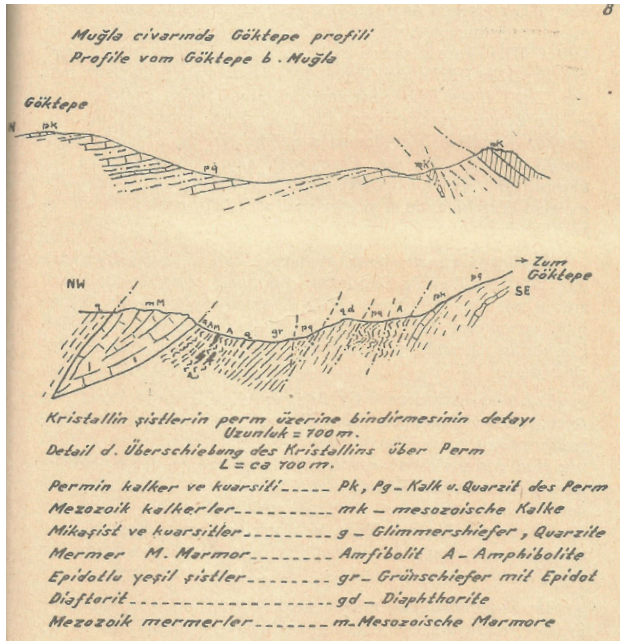 8
Muğla civarında Göktepe profili
Profile vom Göktepe b. Muğla
Göktepe
N pk pq pk mk
→ Zum
Göktepe
NW
SE
g mM A g gr pq gd pq A pk pq
Kristallin şistlerin perm üzerine bindirmesinin detayı
Uzunluk = 100 m.
Detail d. Überschiebung des Kristallins über Perm
L = ca 100 m.
Permin kalker ve kuarsiti _____ Pk, Pg _ Kalk u. Quarzit des Perm
Mezozoik kalkerler _______ mk _ mesozoische Kalke
Mikaşist ve kuarsitler _____ g _ Glimmershiefer, Quarzite
Mermer M. Marmor _______ Amfibolit A _ Amphibolite
Epidotlu yeşil şistler _______ gr _ Grünschiefer mit Epidot
Diaftorit ______________ gd _ Diaphthorite
Mezozoik mermerler _______ m _ Mesozoische Marmore